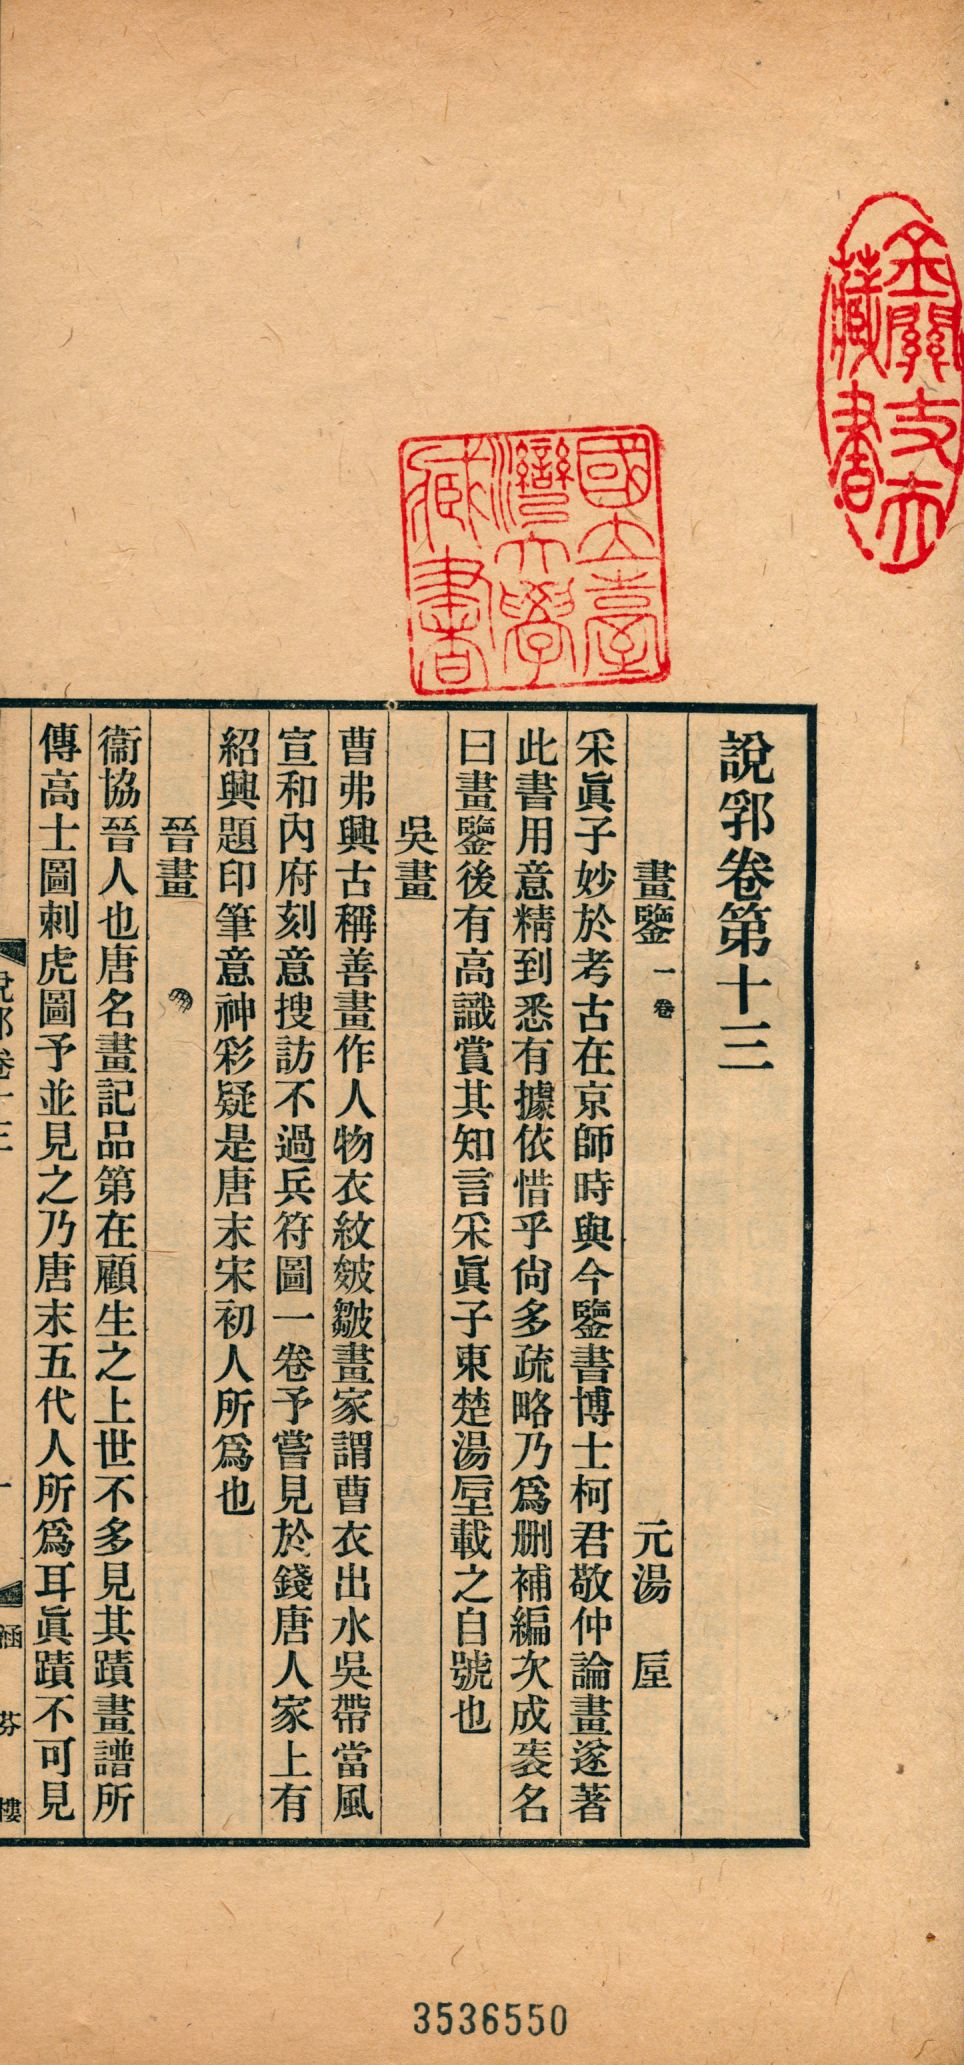 說郛卷第十三
畫鑒 一卷 元湯 垕
采眞子妙於考古在京師時與今鑒書博士柯君敬仲論畫遂著
此書用意精到悉有據依惜乎尙多疏略乃爲删補編次成袠名
曰畫鑒後有高識賞其知言采眞子東楚湯垕載之自號也
吳畫
曹弗興古稱善畫作人物衣紋皴皺畫家謂曹衣出水吳帶當風
宣和內府刻意搜訪不過兵符圖一卷予嘗見於錢唐人家上有
紹興題印筆意神彩疑是唐末宋初人所爲也
晉畫
衞協晉人也唐名畫記品第在顧生之上世不多見其蹟畫譜所
傳高士圖刺虎圖予並見之乃唐末五代人所爲耳眞蹟不可見
說郛卷十三 一 涵芬樓
國立臺灣大學藏書
藏書
3536550